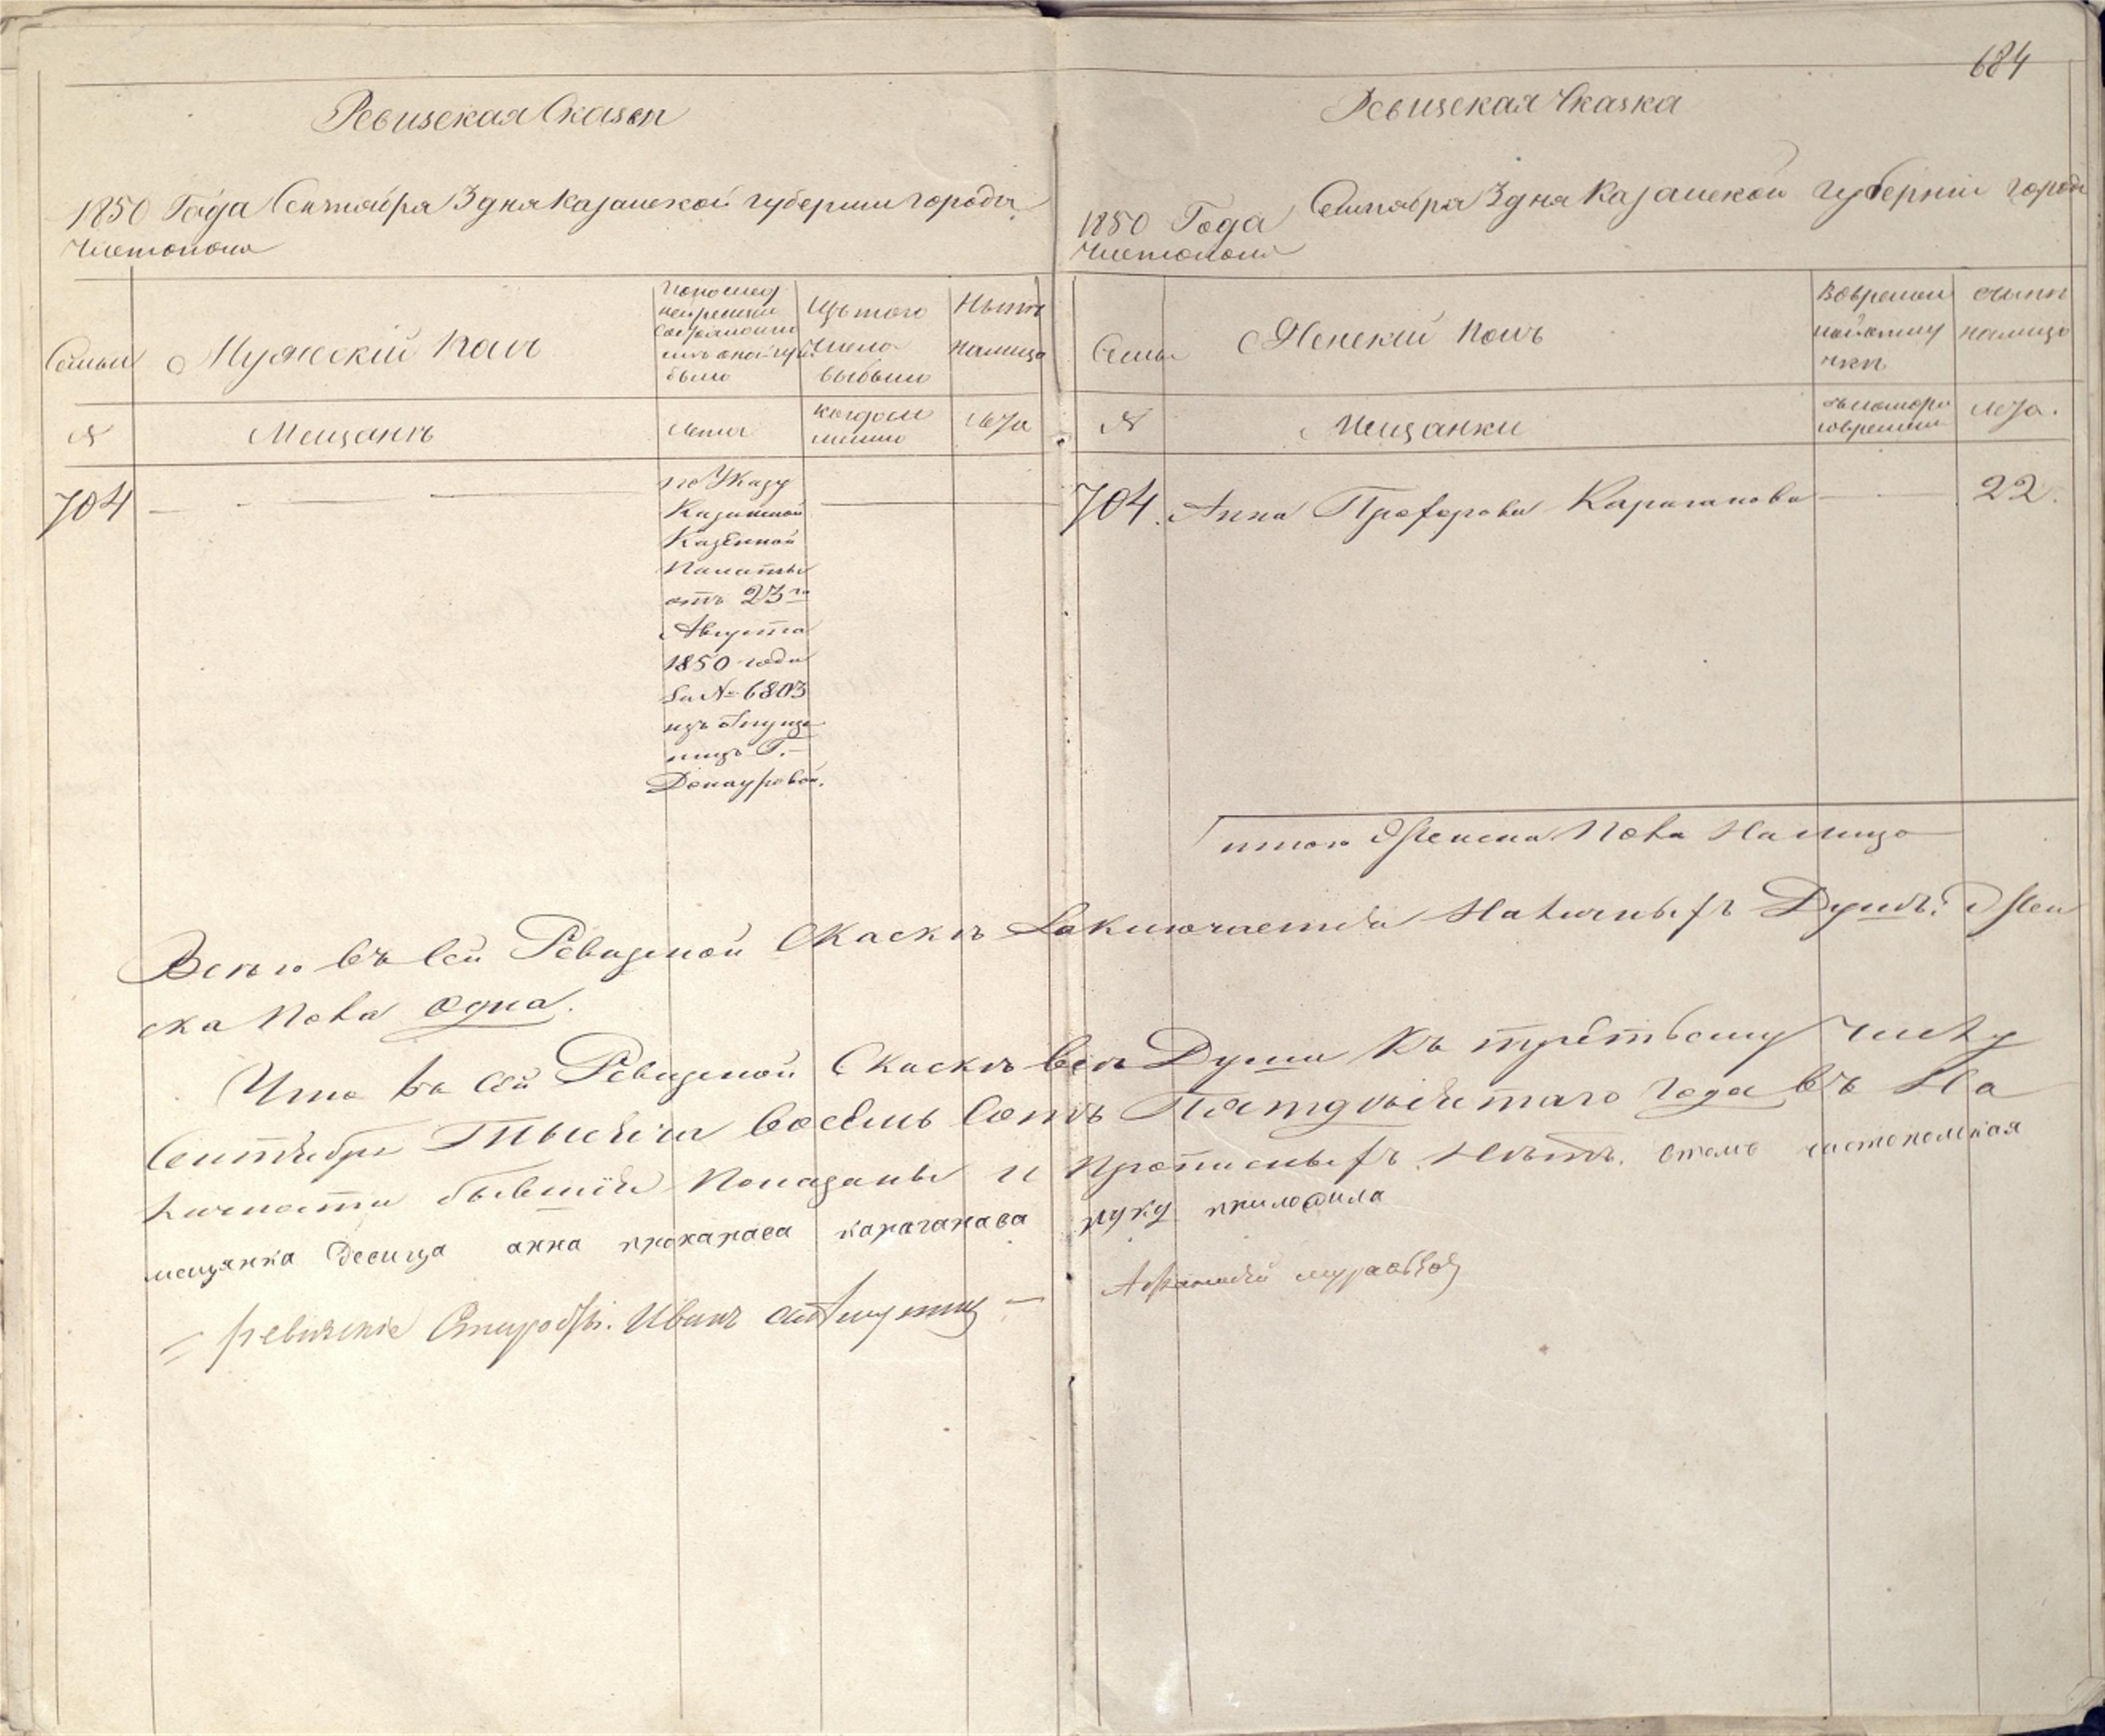 684
Ревизская Сказка
1850 Года Сентября 3 дня казанской губернии города
Чистополя
Семьи
Мужеский полъ
было
Изъ того
числа
выбыло
Нынѣ
налицо
№
Мещанъ
лѣта
лѣта
704
по Указу
Казанской
Казенной
Палаты
отъ 23го
Августа
1850 года
За № 6803
изъ отпуще
ницъ Г.
Донауровой.
Ревизская Сказка
1850 Года Сентября 3 дня Казанской губерніи города
Чистополя
Семьи
Женский полъ
налицо
№
Мещанки
лѣта.
704. Анна Прохорова Караганова 22.
итого Женска Пола На лицо
Всего въ Сей Ревизской Скаскѣ Заключается Наличныхъ Душъ: Жен
ска Пола Одна.
Что въ Сей Ревизской Скаскѣ всѣ Души Къ третьему Числу
Сентября Тысяча Восемь Сотъ Пятдѣсятаго Года въ На
личности бывшія Показаны и Прописныхъ Нѣтъ. втомъ чистопольская
мещанка Девица анна прохарава караганава руку приложила
Ревизскіе Иванъ